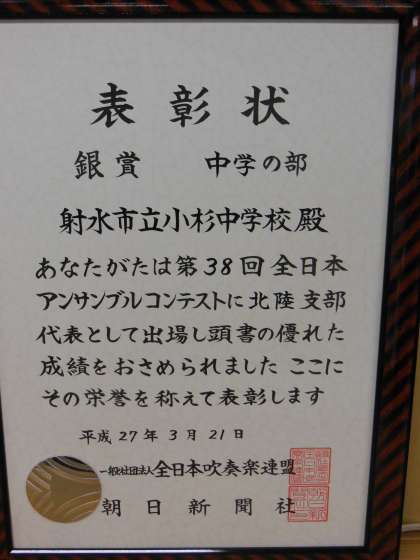 表彰状
銀賞　中学の部
射水市立小杉中学校殿
あなたがたは第38回全日本
アンサンブルコンテストに北陸支部
代表として出場し頭書の優れた
成績をおさめられました ここに
その栄誉を称えて表彰します
平成27年3月21日
一般社団法人全日本吹奏楽連盟
朝日新聞社